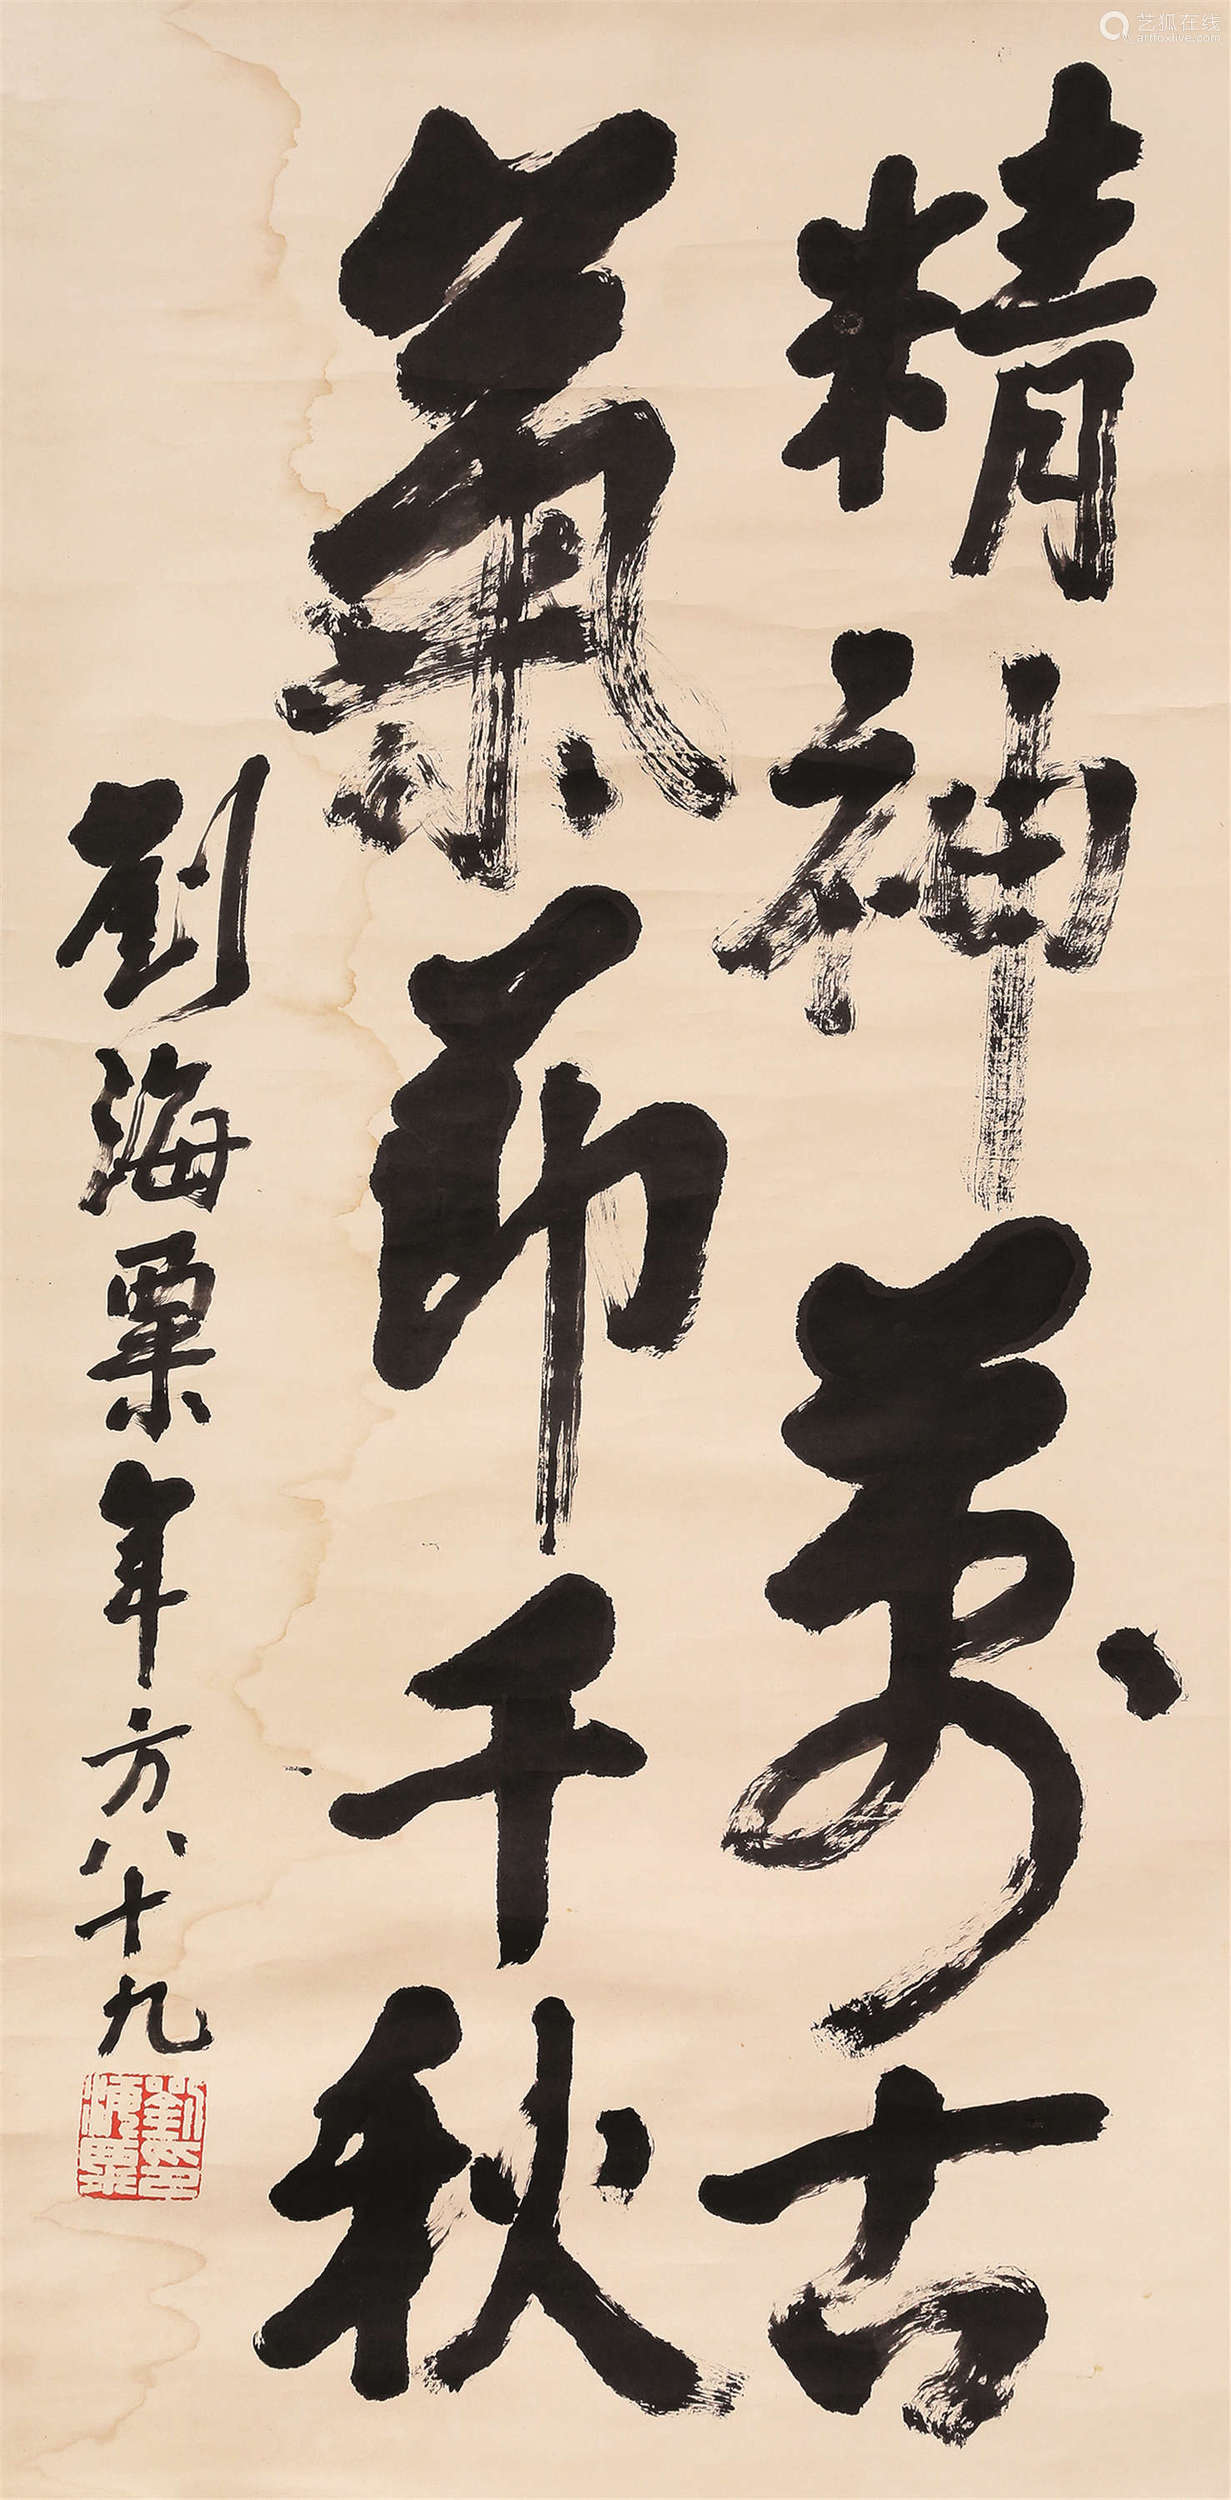 精神萬古
氣節千秋
劉海粟年方八十九
劉海粟印
艺狐在线
artfoxlive.com